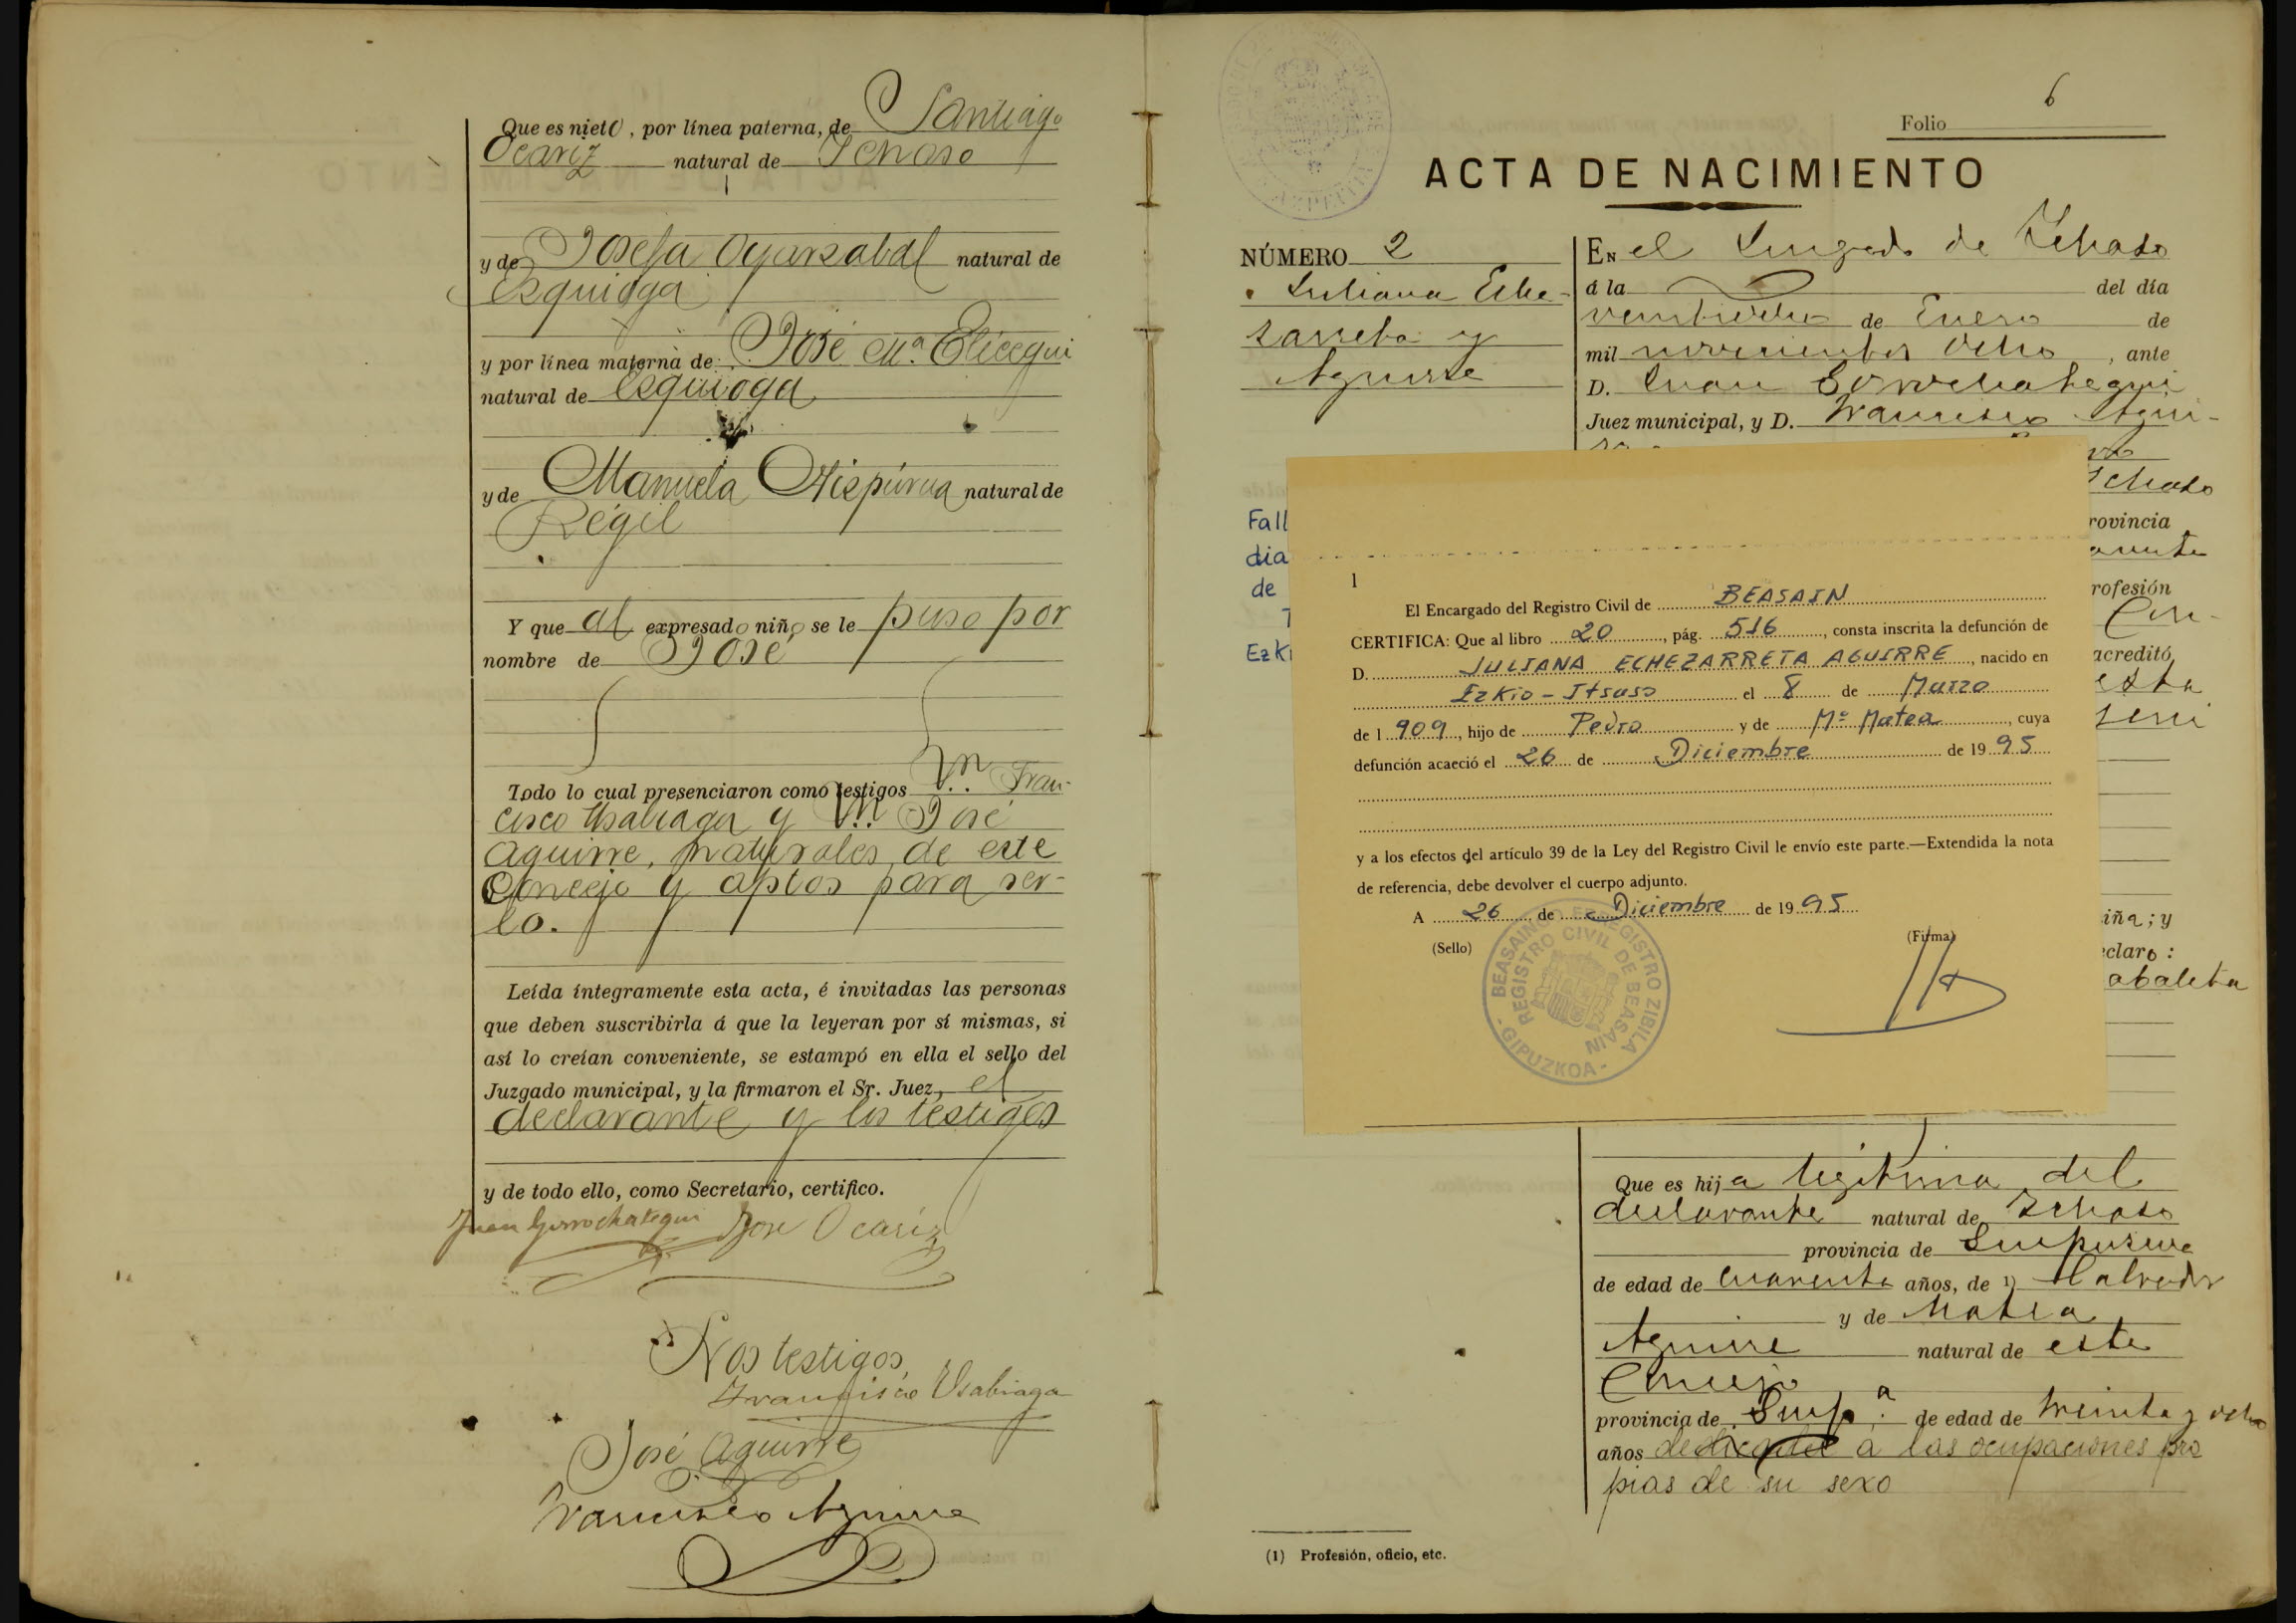 Que es nieto, por línea paterna, de Santiago
Ocariz natural de Ichaso
y de Josefa Oyarzabal natural de
Ezquioga
y por línea materna de José Mª Elicegui
natural de Ezquioga
y de Manuela Aizpúrua natural de
Régil
Y que al expresado niño se le puso por
nombre de José
Todo lo cual presenciaron como testigos Fran-
cisco Usabiaga y José
Aguirre, naturales de este
Concejo y aptos para ser-
lo.
Leída íntegramente esta acta, é invitadas las personas
que deben suscribirla á que la leyeran por sí mismas, si
así lo creían conveniente, se estampó en ella el sello del
Juzgado municipal, y la firmaron el Sr. Juez, el
declarante y los testigos
y de todo ello, como Secretario, certifico.
Juan Gorrochategui José Ocariz
Nos testigos,
Francisco Usabiaga
José Aguirre
Francisco Aguirre
Folio 6
ACTA DE NACIMIENTO
NÚMERO 2
Juliana Eche-
zarreta y
Aguirre
En el Juzgado de Ichaso
á la del día
de Enero de
mil novecientos ocho, ante
D. Juan Gorrochategui
Juez municipal, y D. Francisco Agui-
Ichaso
Fall
rovincia
dia
de
rofesión
Ezki
acreditó
esta
1
El Encargado del Registro Civil de BEASAIN
CERTIFICA: Que al libro 20, pág. 516, consta inscrita la defunción de
D. JULIANA ECHEZARRETA AGUIRRE, nacido en
Ezkio-Itsaso el 8 de Marzo
de 1 909, hijo de Pedro y de Mª Matea, cuya
defunción acaeció el 26 de Diciembre de 19 95
y a los efectos del artículo 39 de la Ley del Registro Civil le envío este parte.—Extendida la nota
de referencia, debe devolver el cuerpo adjunto.
A 26 de Diciembre de 19 95
(Sello) (Firma)
BEASAINGO ERREGISTRO ZIBILA
REGISTRO CIVIL DE BEASAIN
- GIPUZKOA -
iña; y
eclaro:
abaleta
Que es hija legitima del
declarante natural de Ichaso
provincia de Guipuzcoa
de edad de cuarenta años, de 1) labrador
y de Matea
Aguirre natural de este
Concejo
provincia de Guip.ª de edad de treinta y ocho
años dedicada á las ocupaciones pro
pias de su sexo
(1) Profesión, oficio, etc.